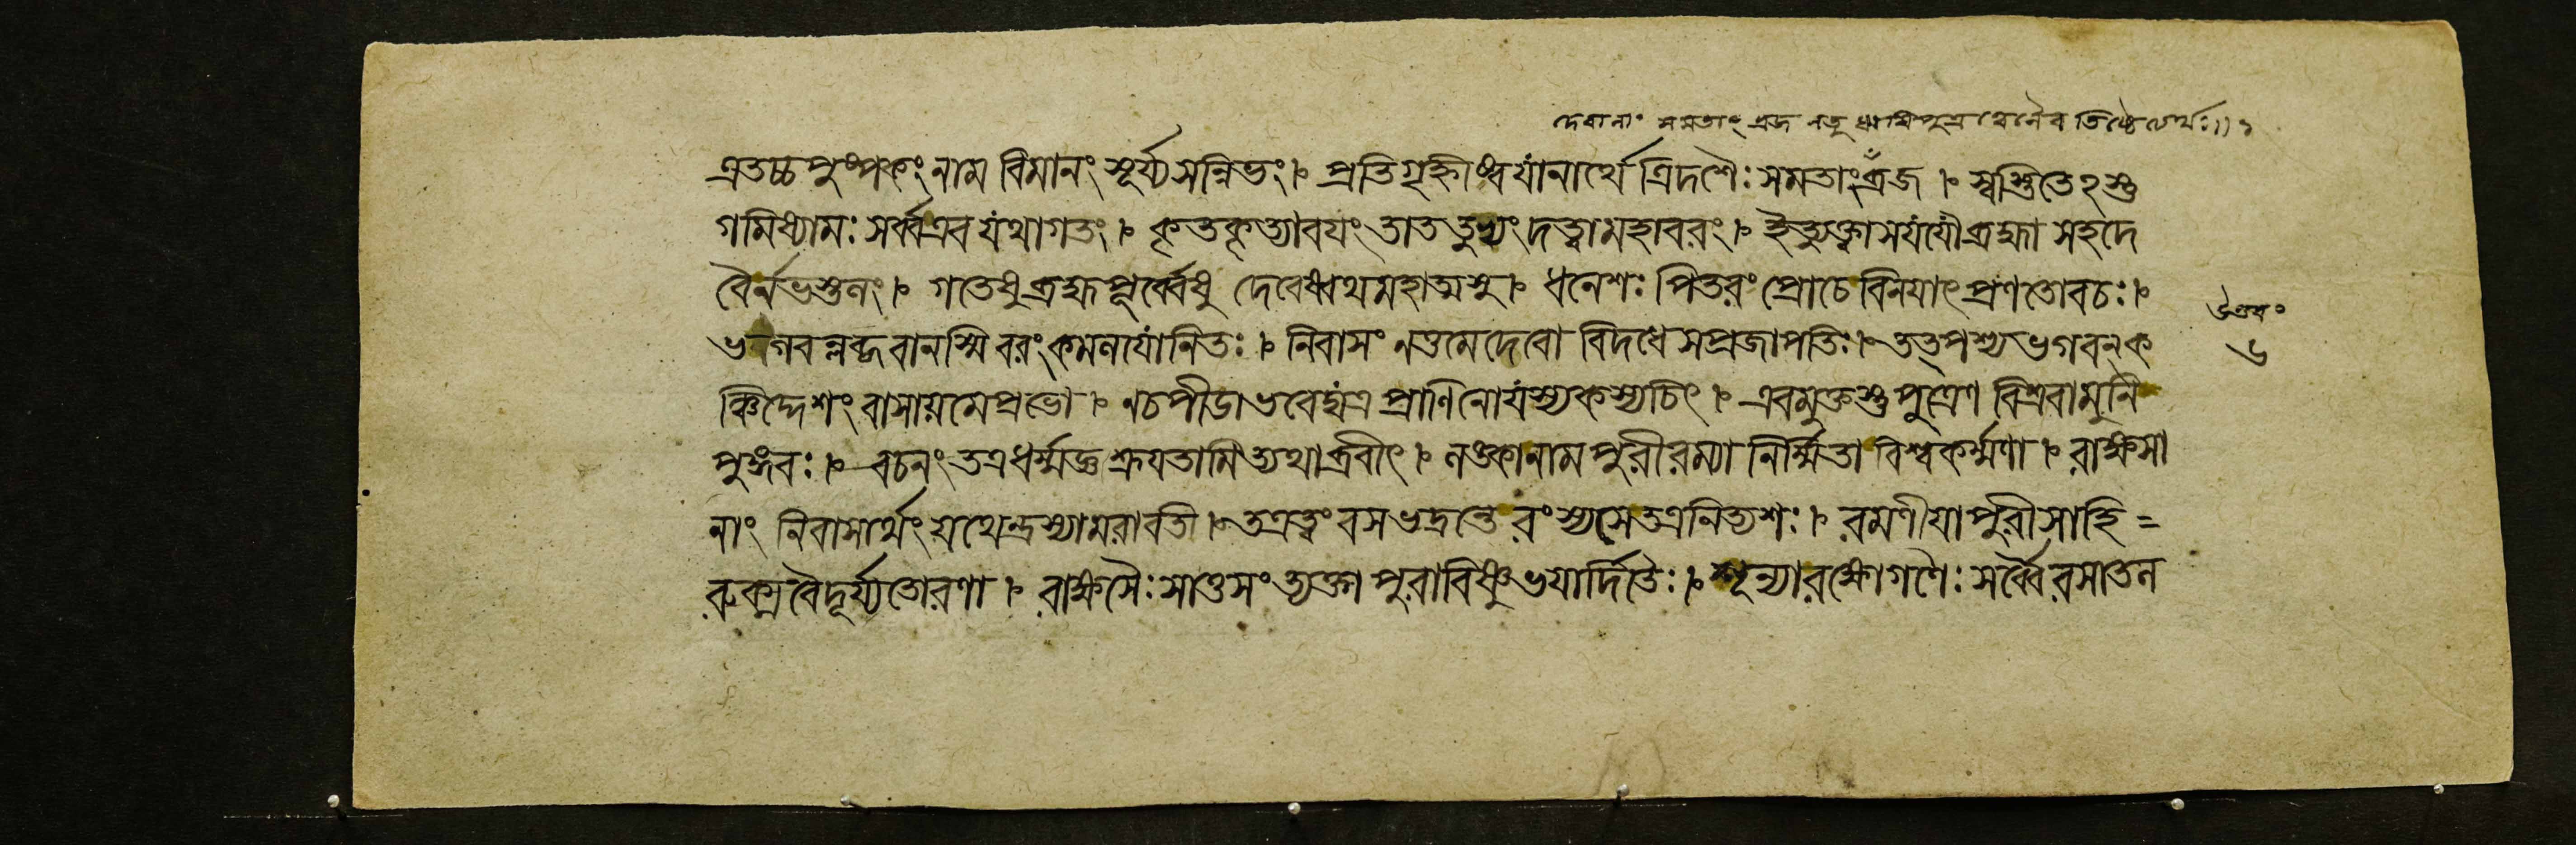 দেবানাং সমতাং ব্রজ নতু ঋষিপুত্রত্বেনৈব তিষ্ঠেত্যর্থঃ।। ১
এতচ্চ পুষ্পকং নাম বিমানং সূর্য্যসন্নিভং । প্রতিগৃহ্নীষ্ব যানার্থে ত্রিদশৈঃ সমতাং ব্রজ । স্বস্তিতেঽস্তু
গমিষ্যামঃ সর্ব্বএব যথাগতং । কৃতকৃত্যাবয়ং তাত তুভ্যং দত্বা মহাবরং । ইত্যুক্ত্বা স যযৌ ব্রহ্মা সহ দে
বৈর্নভস্তলং । গতেষু ব্রহ্মপূর্ব্বেষু দেবেষ্বথ মহাত্মসু । ধনেশঃ পিতরং প্রোচে বিনয়াৎ প্রণতোবচঃ ।
ভগবন্লব্ধবানস্মি বরং কমলযোনিতঃ । নিবাসং নতুমেদেবো বিদধে স প্রজাপতিঃ । তত্পশ্য ভগবন্ ক
ঞ্চিদ্দেশং বাসায় মে প্রভো । নচ পীডা ভবেদ্যত্র প্রাণিনো যস্য কস্যচিৎ । এবমুক্তস্তু পুত্রেণ বিশ্রবা মুনি
পুঙ্গবঃ । বচনং তত্র ধর্ম্মজ্ঞ শ্রুয়তামিত্যথাব্রবীৎ । লঙ্কা নাম পুরী রম্যা নির্ম্মিতা বিশ্বকর্ম্মণা । রাক্ষসা
নাং নিবাসার্থং যথেন্দ্রস্যামরাবতী । তত্র ত্বং বস ভদ্রন্তে রংস্যসে তত্র নিত্যশঃ । রমণীয়া পুরী সা হি =
রুক্মবৈদূর্য্যতোরণা । রাক্ষসৈঃ সা তু সংত্যক্তা পুরা বিষ্ণুভয়ার্দিতৈঃ । শূন্যা রক্ষোগণৈঃ সর্ব্বৈ রসাতল
উত্তরং
৬